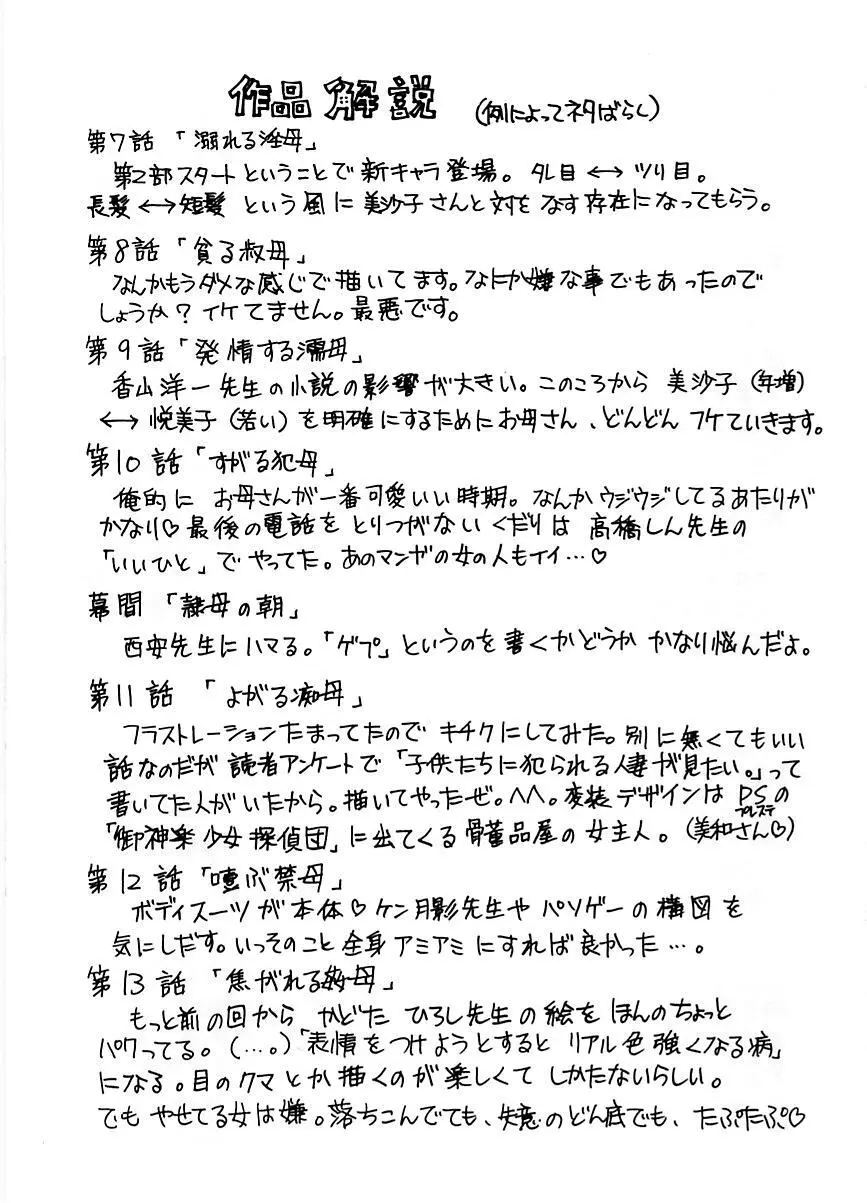 作品解説 (例によってネタばらし)
第7話 「溺れる淫母」
第2部スタートということで新キャラ登場。タレ目⟷ツリ目。
長髪⟷短髪 という風に美沙子さんと対をなす存在になってもらう。
第8話「貪る叔母」
なんかもうダメな感じで描いてます。なにか嫌な事でもあったので
しょうか？イケてません。最悪です。
第9話「発情する濡母」
香山洋一先生の小説の影響が大きい。このころから 美沙子(年増)
⟷悦美子(若い)を明確にするためにお母さん、どんどんフケていきます。
第10話「すがる犯母」
俺的に お母さんが一番可愛いい時期。なんかウジウジしてるあたりが
かなり♡最後の電話をとりつがないくだりは 高橋しん先生の
「いいひと」でやってた。あのマンガの女の人もイイ…♡
幕間「隷母の朝」
西安先生にハマる。「ゲプ」というのを書くかどうか かなり悩んだよ。
第11話 「よがる痴母」
フラストレーションたまってたので キチクにしてみた。別に無くてもいい
話なのだが 読者アンケートで「子供たちに犯られる人妻が見たい。」って
書いてた人がいたから。描いてやったぜ。ヘヘ。変装デザインはPSの
プレステ
「御神楽少女探偵団」に出てくる骨董品屋の女主人。(美和さん♡)
第12話「噎ぶ禁母」
ボディスーツが本体♡ケン月影先生やパソゲーの構図を
気にしだす。いっそのこと全身アミアミにすれば良かった…。
第13話「焦がれる母」
もっと前の回から かどたひろし先生の絵を ほんのちょっと
パクってる。(…。)「表情をつけようとすると リアル色強くなる病」
になる。目のクマとか描くのが楽しくてしかたないらしい。
でもやせてる女は嫌。落ちこんでても、失意のどん底でも、たぷたぷ♡